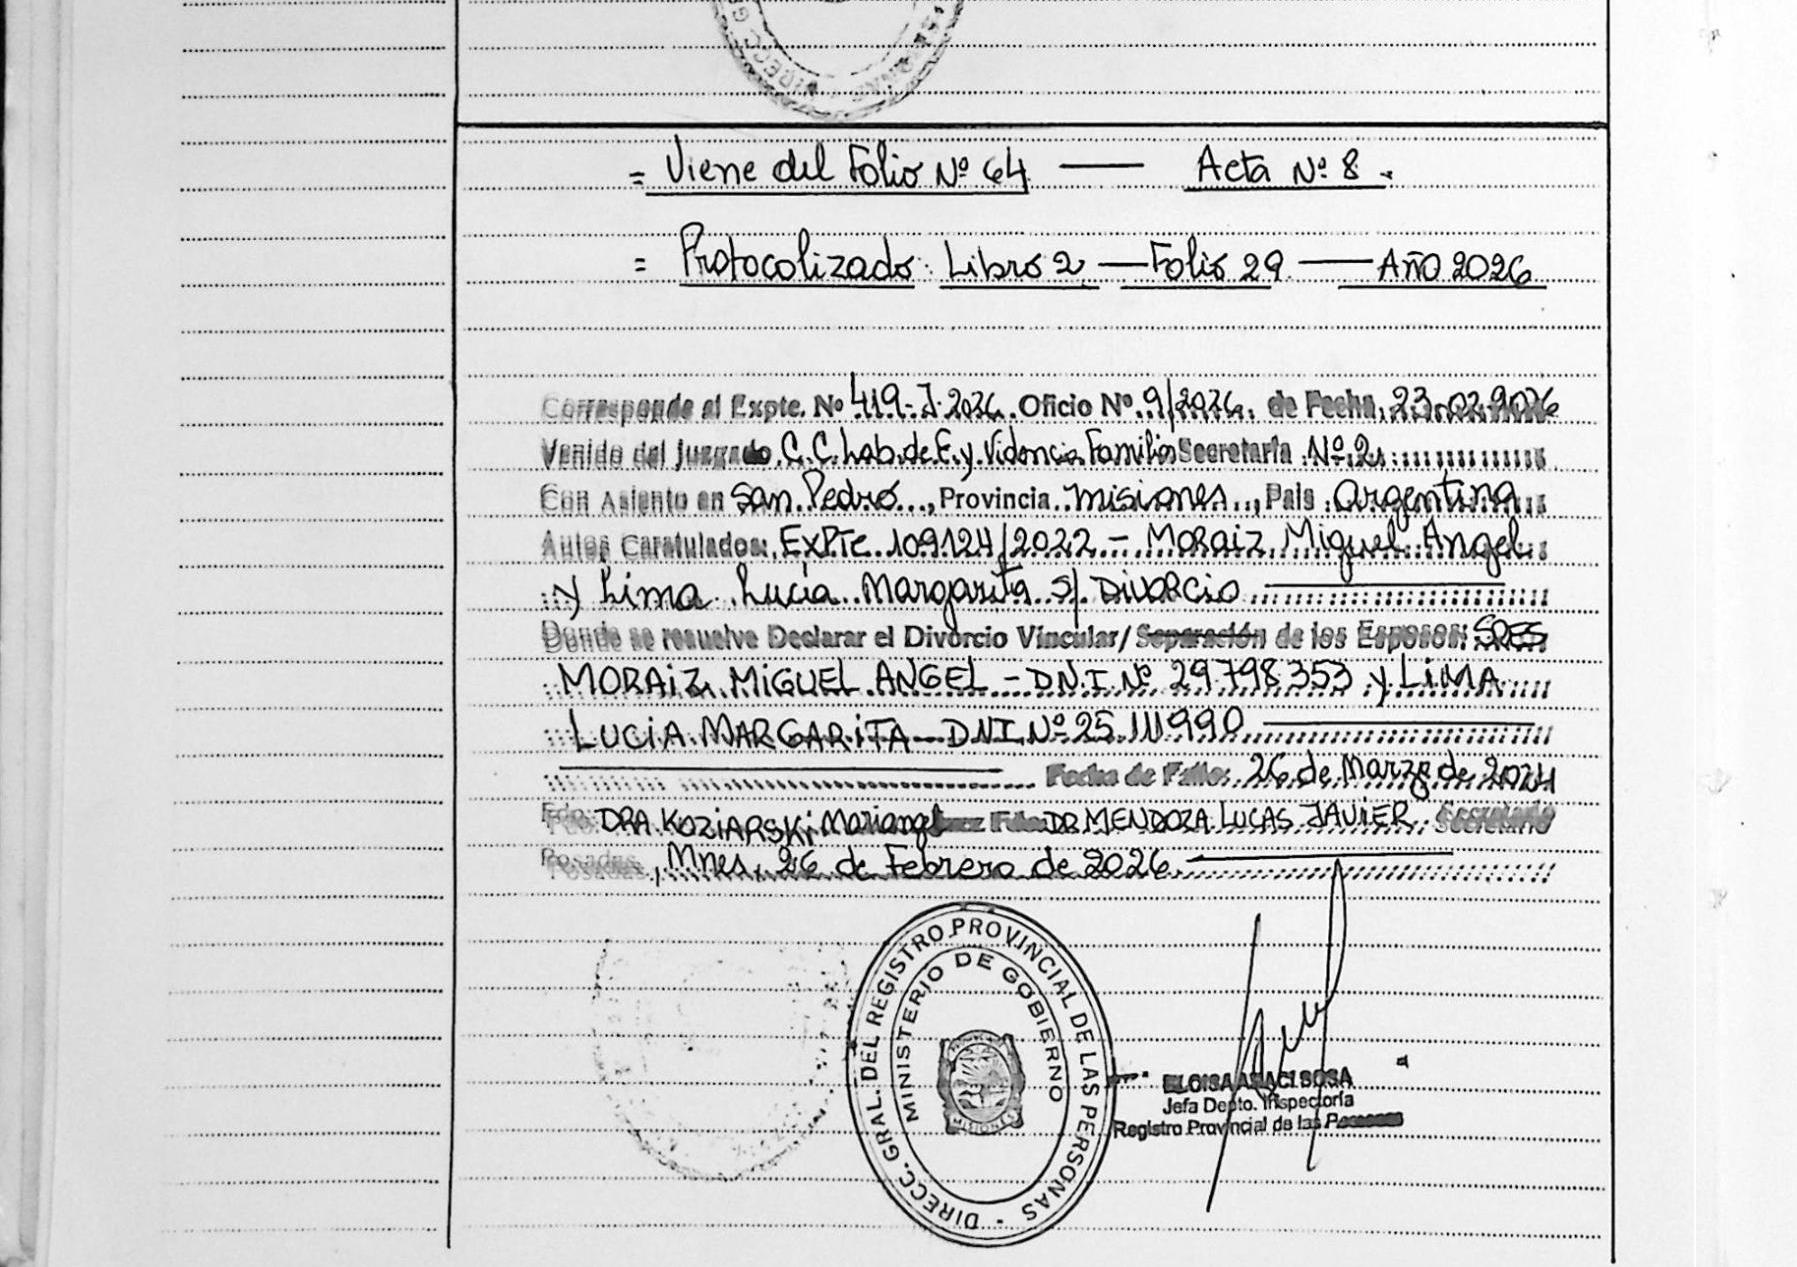 = Viene del Folio Nº 64 — Acta Nº 8.
= Protocolizado: Libro 2 — Folio 29 — Año 2026
Corresponde al Expte. Nº 419-J-2026. Oficio Nº 9/2026. de Fecha, 23-02-2026
Venido del Juzgado C.C. Lab. de F. y Violencia Familia Secretaría Nº 2
Con Asiento en San Pedro..., Provincia Misiones.., País Argentina
Autos Caratulados: EXPTE 109124/2022 - MORAIZ Miguel Angel
y Lima Lucía Margarita S/ DIVORCIO
Donde se resuelve Declarar el Divorcio Vincular/ Separación de los Esposos: SRES
MORAIZ MIGUEL ANGEL - DN.I Nº 29798353 y LIMA
LUCIA MARGARITA - DNI Nº 25.111990
Fecha de Fallo: 26 de Marzo de 2024
Fdo: DRA KOZIARSKI Mariangel Juez Fdo: DR MENDOZA LUCAS JAVIER Secretario
Posadas, Mnes, 26 de Febrero de 2026.
DIRECC. GRAL. DEL REGISTRO PROVINCIAL DE LAS PERSONAS
MINISTERIO DE GOBIERNO
MISIONES
SOSA
Jefa Depto. Inspectoría
Registro Provincial de las Personas